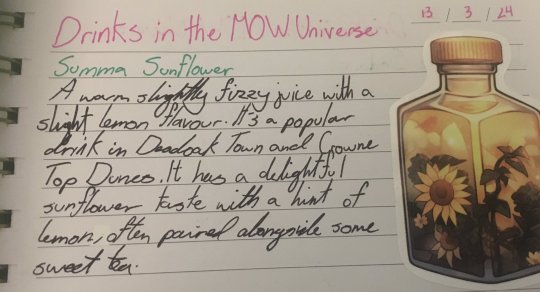 13 / 3 / 24
Drinks in the MOW Universe
Summa Sunflower
A warm slightly fizzy juice with a
slight lemon flavour. It's a popular
drink in Deadoak Town and Crowne
Top Dunes. It has a delightful
sunflower taste with a hint of
lemon, often paired alongside some
sweet tea.